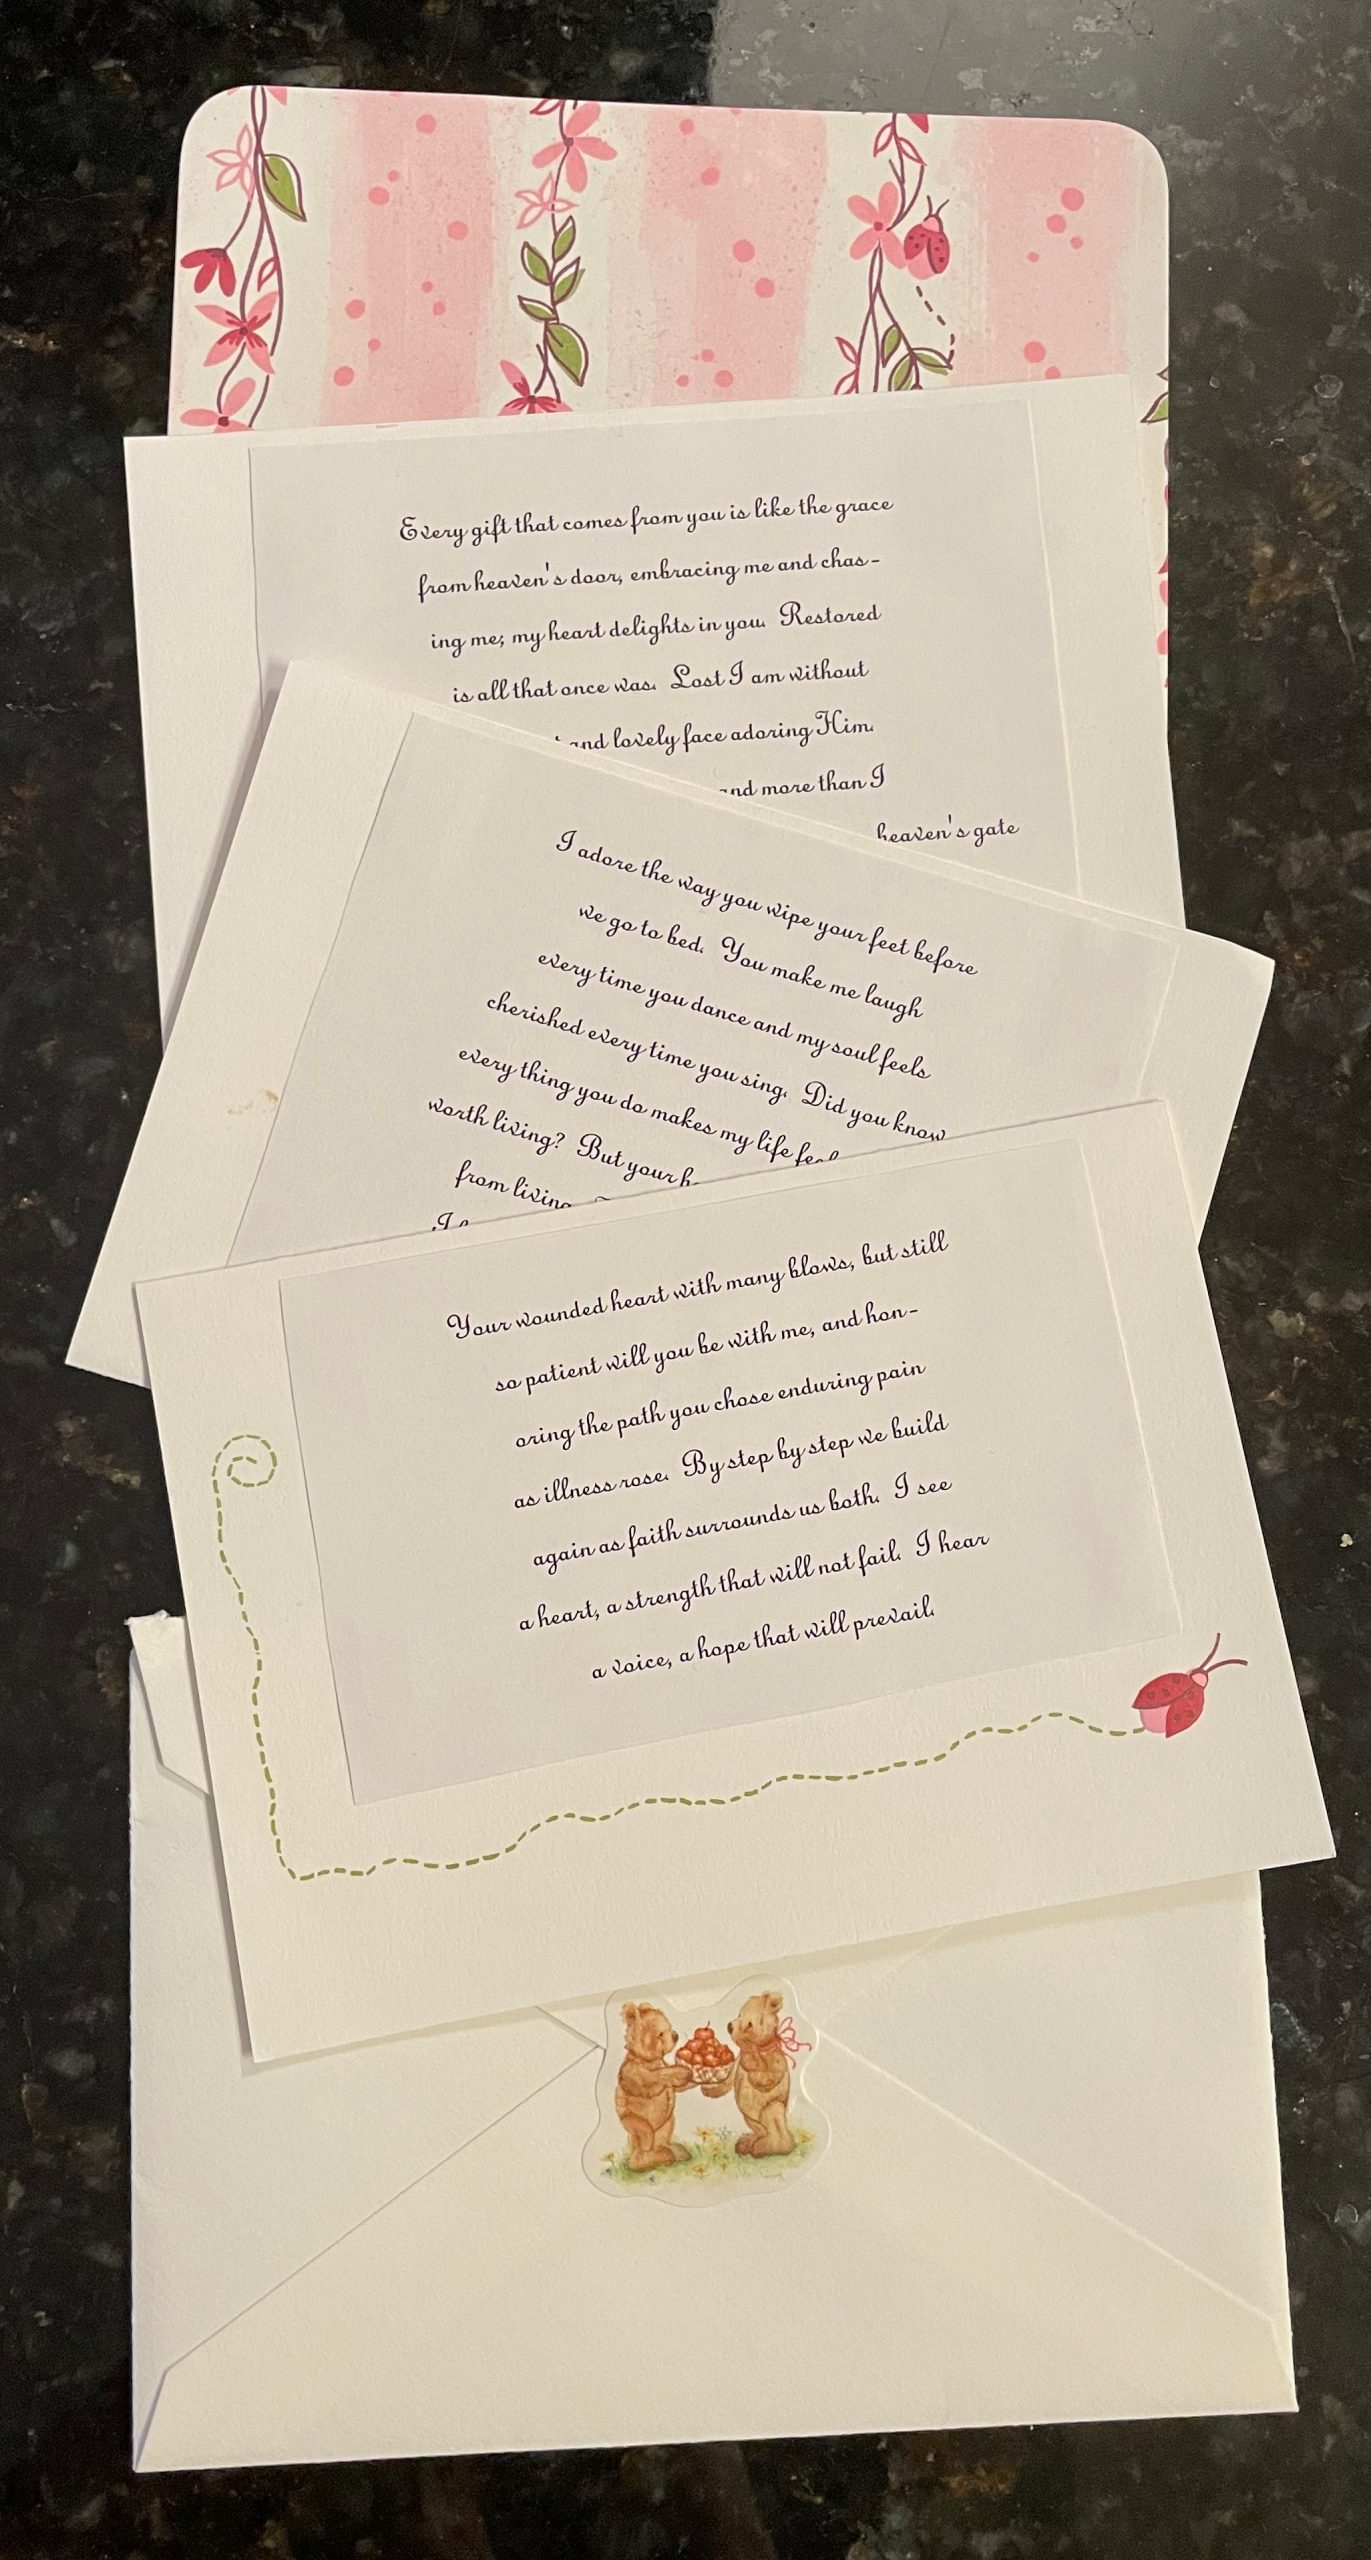 Every gift that comes from you is like the grace
from heaven's door, embracing me and chas-
ing me; my heart delights in you. Restored
is all that once was. Lost I am without
and lovely face adoring Him.
and more than I
heaven's gate
I adore the way you wipe your feet before
we go to bed. You make me laugh
every time you dance and my soul feels
cherished every time you sing. Did you know
every thing you do makes my life feel
worth living? But your
from living
I
Your wounded heart with many blows, but still
so patient will you be with me, and hon-
oring the path you chose enduring pain
as illness rose. By step by step we build
again as faith surrounds us both. I see
a heart, a strength that will not fail. I hear
a voice, a hope that will prevail.